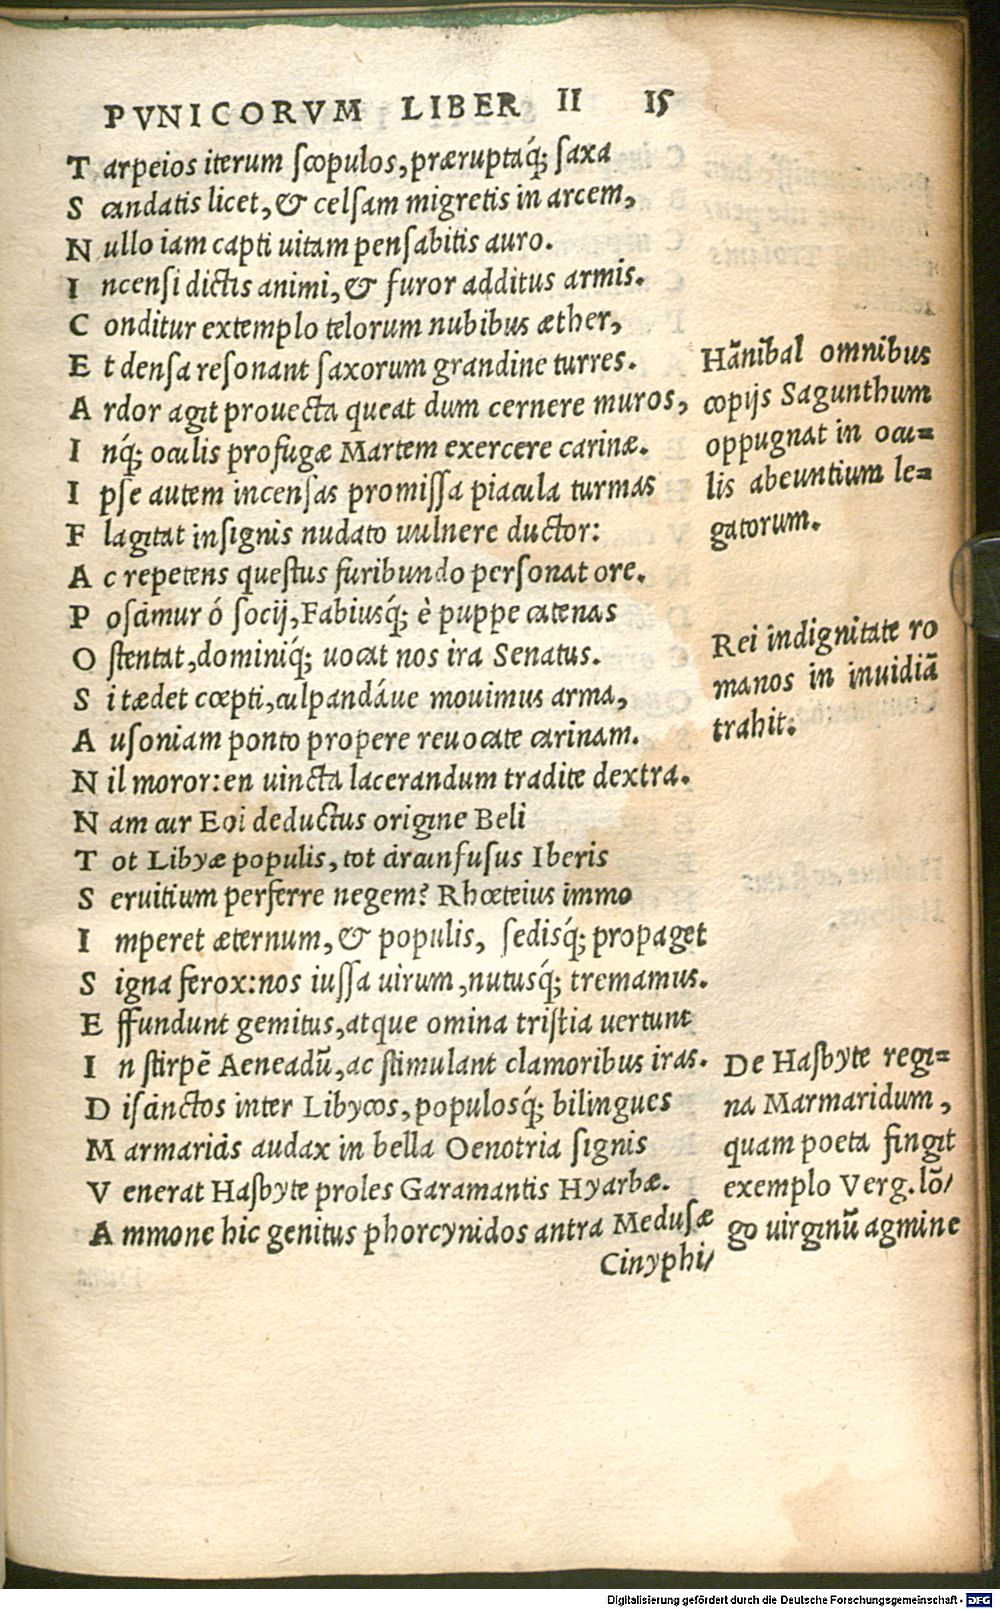 PVNICORVM LIBER II 15
T arpeios iterum scopulos, præruptaq́; saxa
S candatis licet, & celsam migretis in arcem,
N ullo iam capti uitam pensabitis auro.
I ncensi dictis animi, & furor additus armis.
C onditur extemplo telorum nubibus æther,
E t densa resonant saxorum grandine turres.
A rdor agit prouecta queat dum cernere muros,
I nq́; oculis profugæ Martem exercere carinæ.
I pse autem incensas promissa piacula turmas
F lagitat insignis nudato uulnere ductor:
A c repetens questus furibundo personat ore.
P oscimur ó socij, Fabiusq́; è puppe catenas
O stentat, dominiq́; uocat nos ira Senatus.
S i tædet cœpti, culpandáue mouimus arma,
A usoniam ponto propere reuocate carinam.
N il moror: en uincta lacerandum tradite dextra.
N am cur Eoi deductus origine Beli
T ot Libyæ populis, tot circunfusus Iberis
S eruitium perferre negem? Rhœteius immo
I mperet æternum, & populis, sedisq́; propaget
S igna ferox: nos iussa uirum, nutusq́; tremamus.
E ffundunt gemitus, atque omina tristia uertunt
I n stirpē Aeneadū, ac stimulant clamoribus iras.
D iscinctos inter Libycos, populosq́; bilingues
M armaricis audax in bella Oenotria signis
V enerat Hasbyte proles Garamantis Hyarbæ.
A mmone hic genitus phorcynidos antra Medusæ
Cinyphi/
Hānibal omnibus
copijs Sagunthum
oppugnat in ocu=
lis abeuntium le=
gatorum.
Rei indignitate ro
manos in inuidiā
trahit.
De Hasbyte regi=
na Marmaridum,
quam poeta fingit
exemplo Verg. lō/
go uirginū agmine
Digitalisierung gefördert durch die Deutsche Forschungsgemeinschaft - DFG